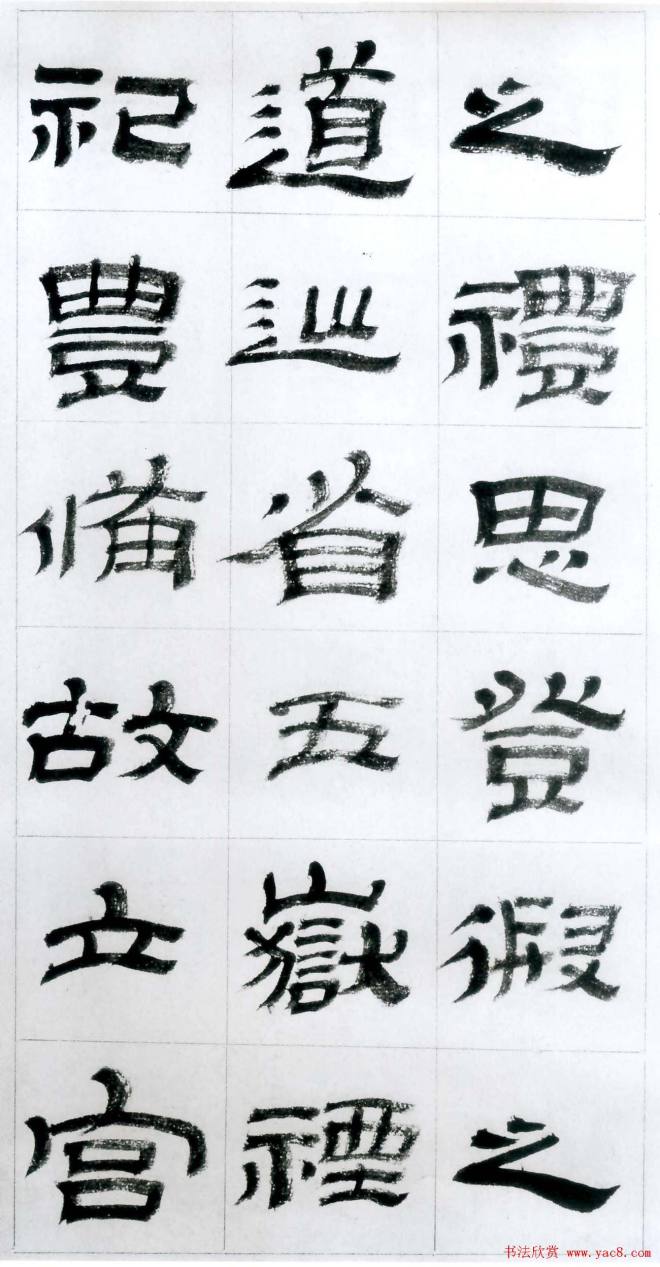 之禮思登徦之
道巡省五嶽禋
祀豐備故立宮
书法欣赏 www.yac8.com